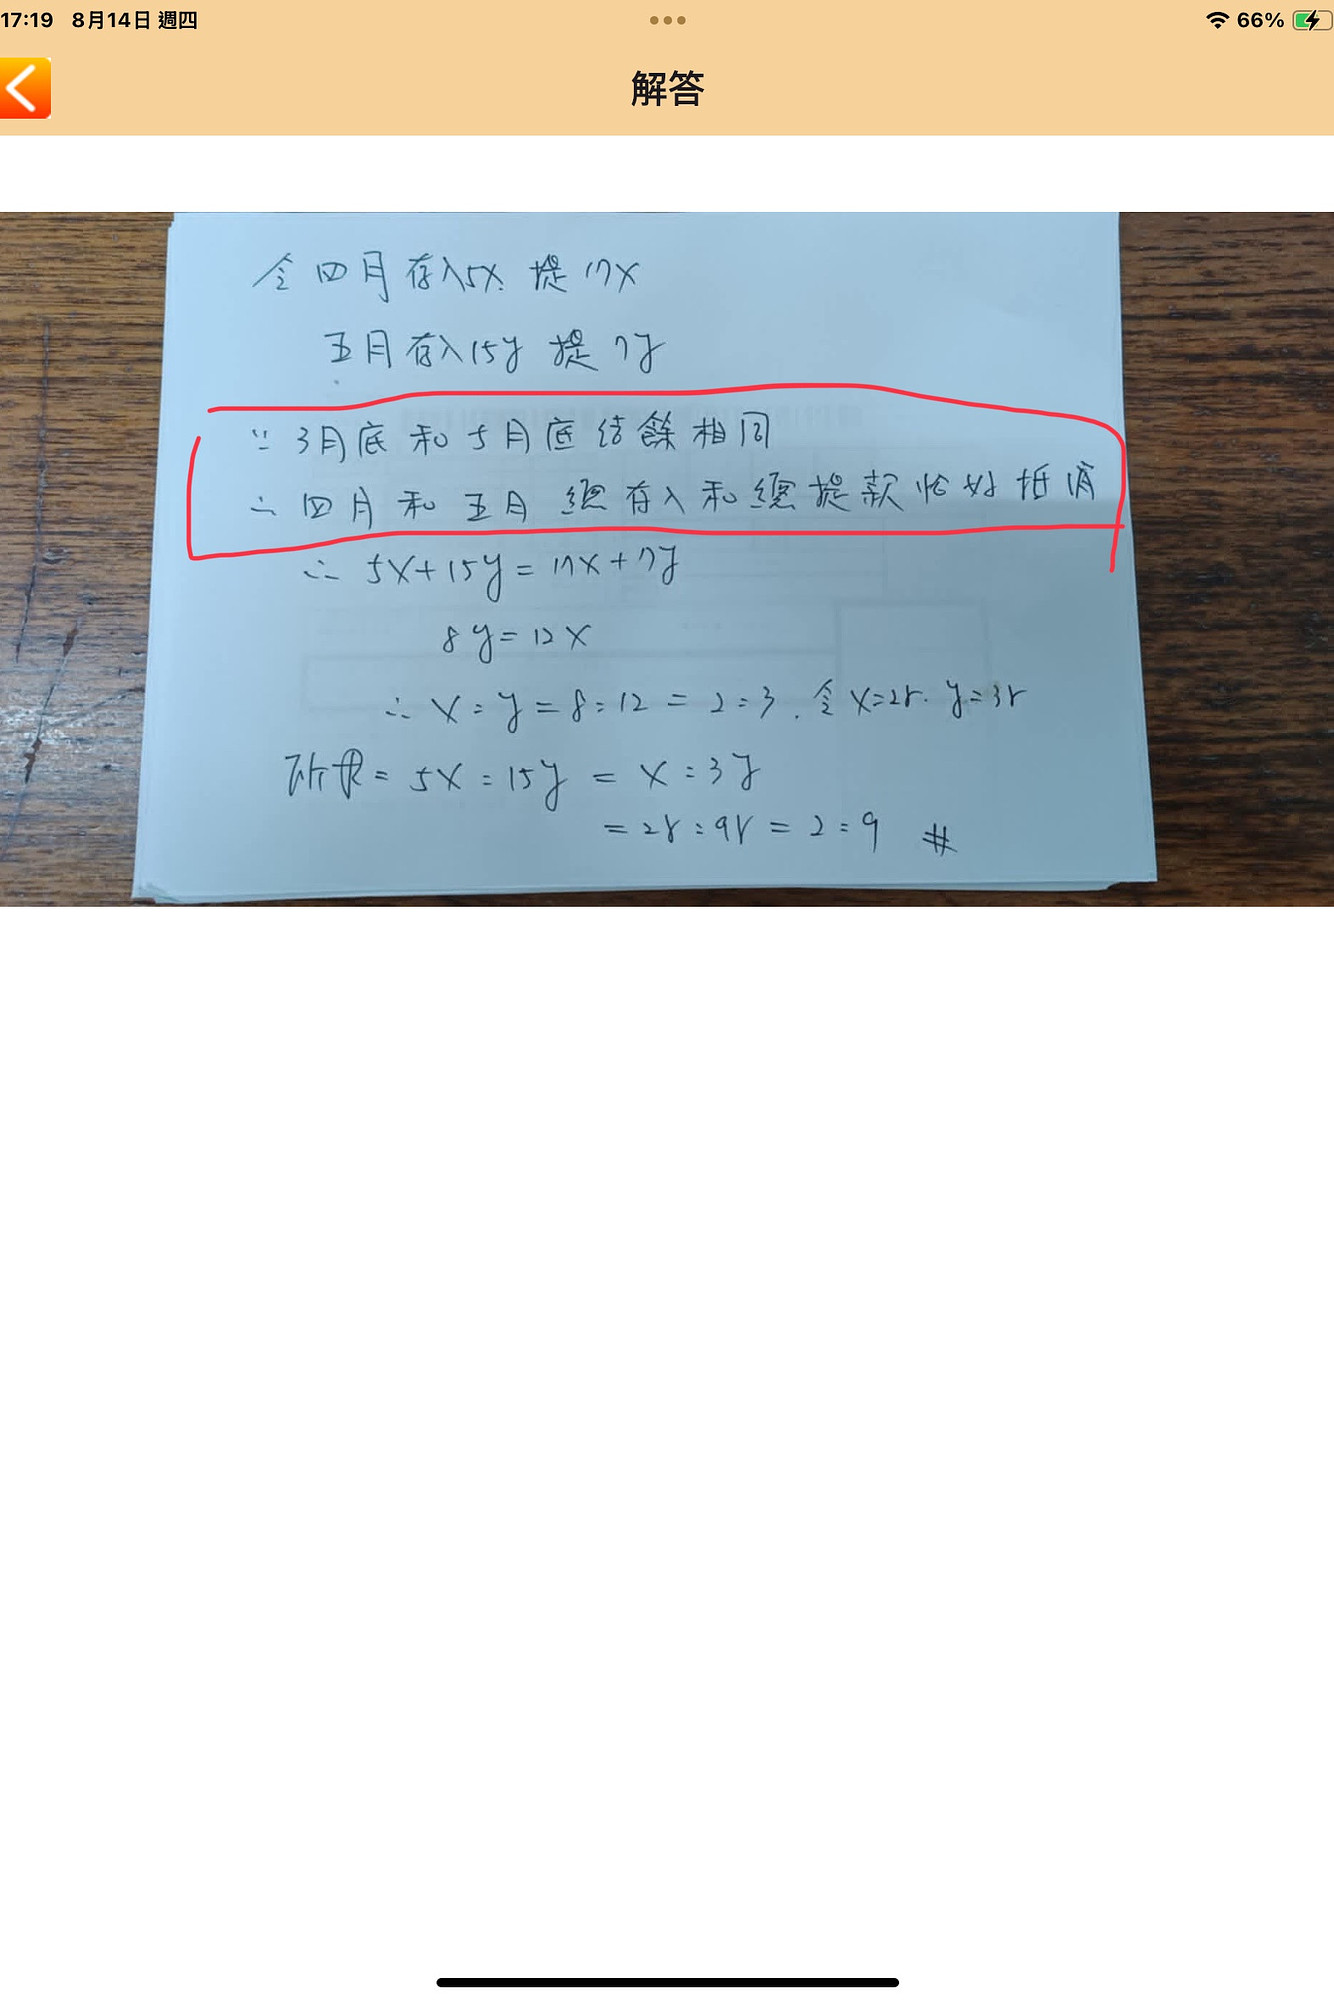 17:19 8月14日 週四
66%
解答
令四月存入5x. 提17x
五月存入15y 提7y
∵ 3月底和5月底結餘相同
∴ 四月和五月總存入和總提款恰好抵消
∴ 5x+15y=17x+7y
8y=12x
∴ x:y=8:12=2:3. 令x=2r. y=3r
所求=5x:15y=x:3y
=2r:9r=2:9 #